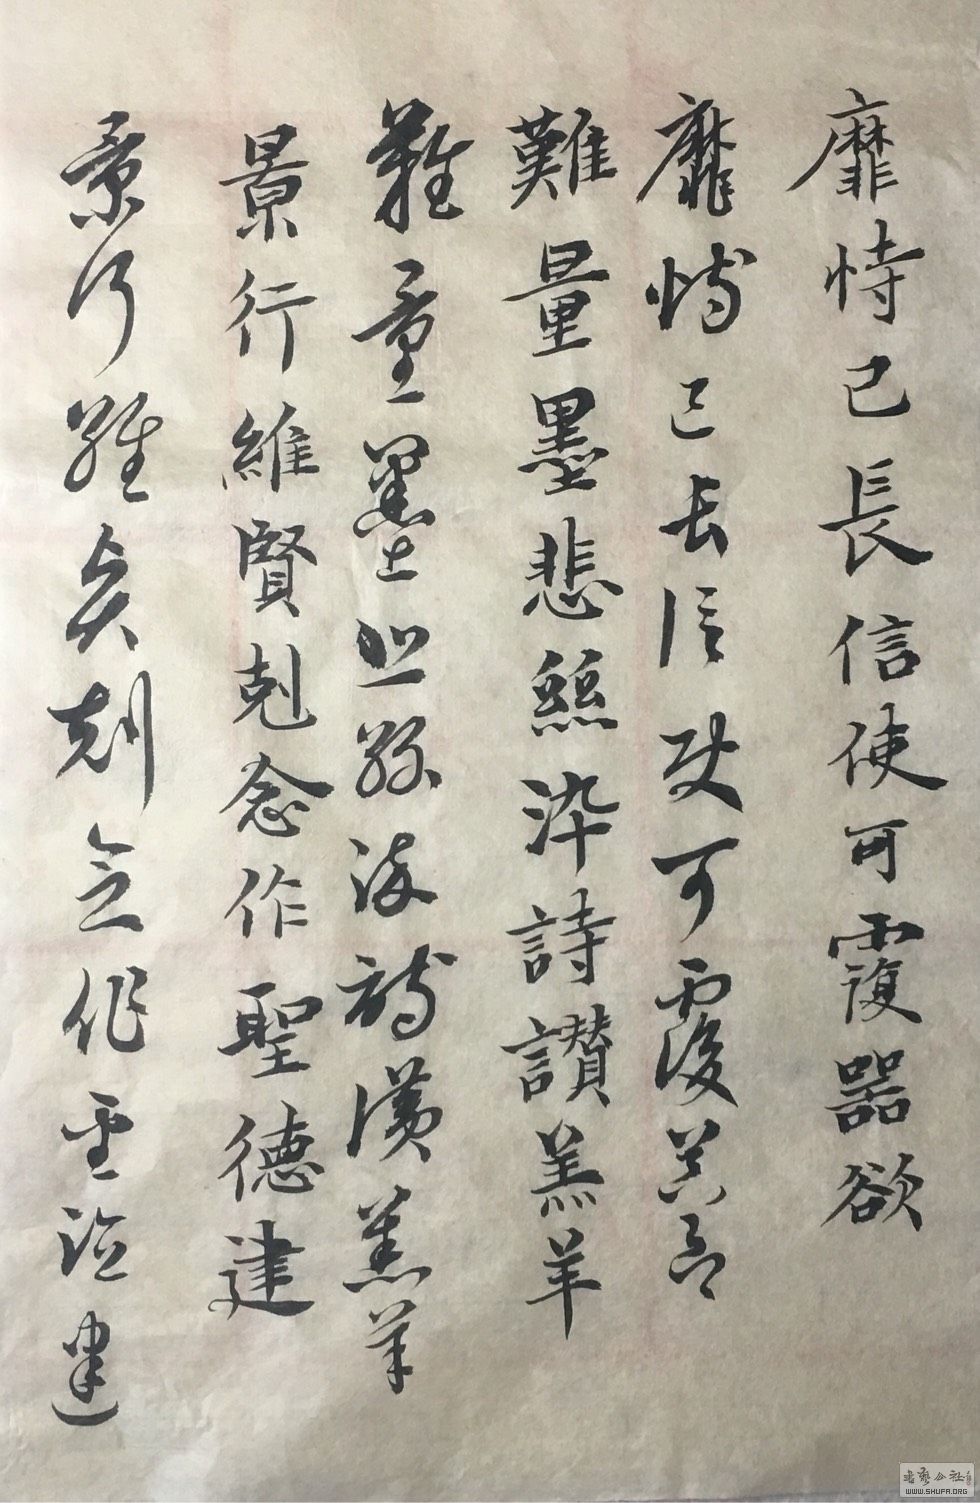 靡恃己長信使可覆器欲
靡恃己長信使可覆器欲
難量墨悲絲染詩讚羔羊
難量墨悲絲染詩讚羔羊
景行維賢剋念作聖德建
景行維賢剋念作聖德建
书艺公社
WWW.SHUFA.ORG